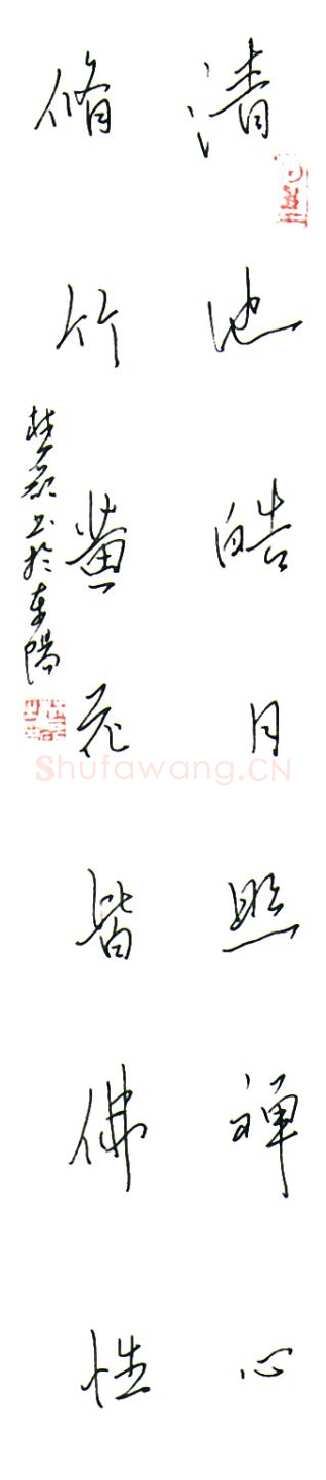 清池皓月照禅心
脩竹黄花皆佛性
书於东阳
Shufawang.CN